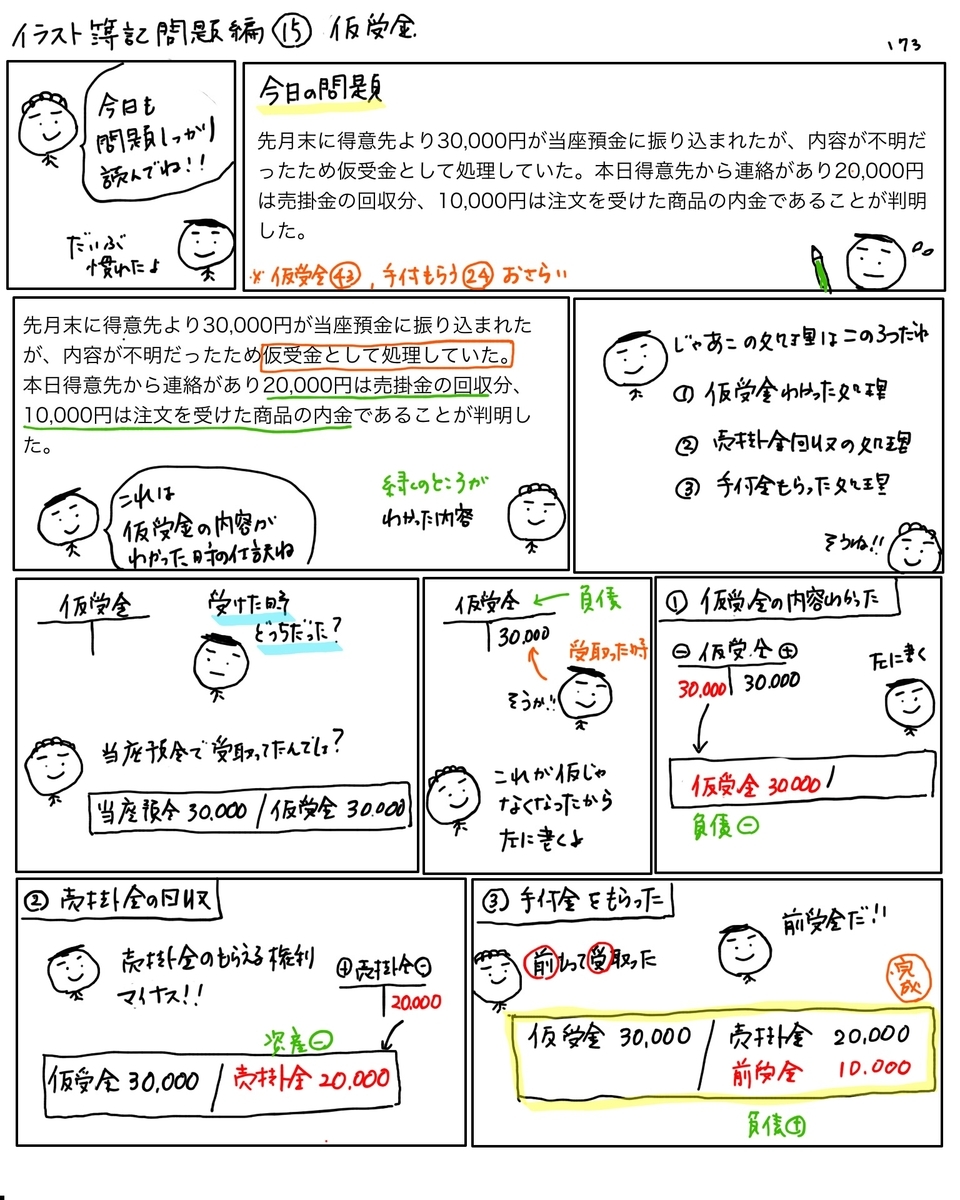 イラスト簿記問題編⑮ 仮受金
173
今日も
問題しっかり
読んでね!!
だいぶ
慣れたよ
今日の問題
先月末に得意先より30,000円が当座預金に振り込まれたが、内容が不明だ
ったため仮受金として処理していた。本日得意先から連絡があり20,000円
は売掛金の回収分、10,000円は注文を受けた商品の内金であることが判明
した。
※仮受金㊸,手付もらう㉔おさらい
先月末に得意先より30,000円が当座預金に振り込まれた
が、内容が不明だったため仮受金として処理していた。
本日得意先から連絡があり20,000円は売掛金の回収分、
10,000円は注文を受けた商品の内金であることが判明し
た。
これは
仮受金の内容が
わかった時の仕訳ね
緑のところが
わかった内容
じゃあこの処理はこの3つだね
① 仮受金わかった処理
② 売掛金回収の処理
③ 手付金もらった処理
そうね!!
仮受金
受けた時
どっちだった?
当座預金で受取ってたんでしょ?
当座預金 30,000 / 仮受金 30,000
仮受金 ← 負債
30,000
受取った時
そうか!!
これが仮じゃ
なくなったから
左に書くよ
① 仮受金の内容わかった
⊖ 仮受金 ⊕
30,000 30,000
左に書く
仮受金 30000 /
負債⊖
② 売掛金の回収
売掛金のもらえる権利
マイナス!!
⊕売掛金⊖
20,000
資産⊖
仮受金 30,000 / 売掛金 20,000
③ 手付金をもらった
前もって受取った
前受金だ!!
完成
仮受金 30,000 / 売掛金 20,000
前受金 10.000
負債⊕